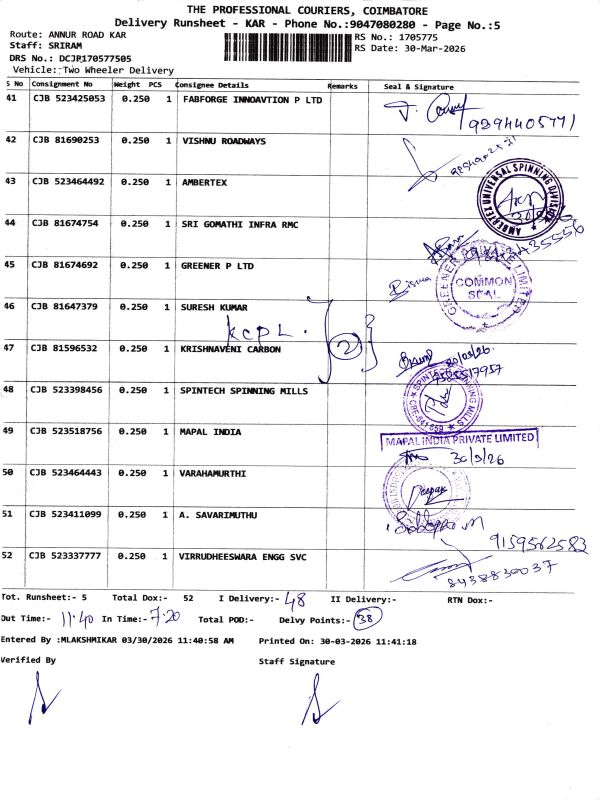 THE PROFESSIONAL COURIERS, COIMBATORE
Delivery Runsheet - KAR - Phone No.:9047080280 - Page No.:5
Route: ANNUR ROAD KAR
RS No.: 1705775
Staff: SRIRAM
RS Date: 30-Mar-2026
DRS No.: DCJP170577505
Vehicle: Two Wheeler Delivery
S No Consignment No Weight PCS Consignee Details Remarks Seal & Signature
41 CJB 523425053 0.250 1 FABFORGE INNOAVTION P LTD
42 CJB 81690253 0.250 1 VISHNU ROADWAYS
43 CJB 523464492 0.250 1 AMBERTEX
AMBERTEX UNIVERSAL SPINNING DIVISION
44 CJB 81674754 0.250 1 SRI GOMATHI INFRA RMC
45 CJB 81674692 0.250 1 GREENER P LTD
GREENER PRIVATE LIMITED
COMMON SEAL
46 CJB 81647379 0.250 1 SURESH KUMAR
KCPL. 2
47 CJB 81596532 0.250 1 KRISHNAVENI CARBON
48 CJB 523398456 0.250 1 SPINTECH SPINNING MILLS
49 CJB 523518756 0.250 1 MAPAL INDIA
MAPAL INDIA PRIVATE LIMITED
30/3/26
50 CJB 523464443 0.250 1 VARAHAMURTHI
Deepak
51 CJB 523411099 0.250 1 A. SAVARIMUTHU
9159562583
52 CJB 523337777 0.250 1 VIRRUDHEESWARA ENGG SVC
8438830037
Tot. Runsheet:- 5 Total Dox:- 52 I Delivery:- 48 II Delivery:- RTN Dox:-
Out Time:- 11.40 In Time:- 7.20 Total POD:- Delvy Points:- 38
Entered By :MLAKSHMIKAR 03/30/2026 11:40:58 AM Printed On: 30-03-2026 11:41:18
Verified By Staff Signature